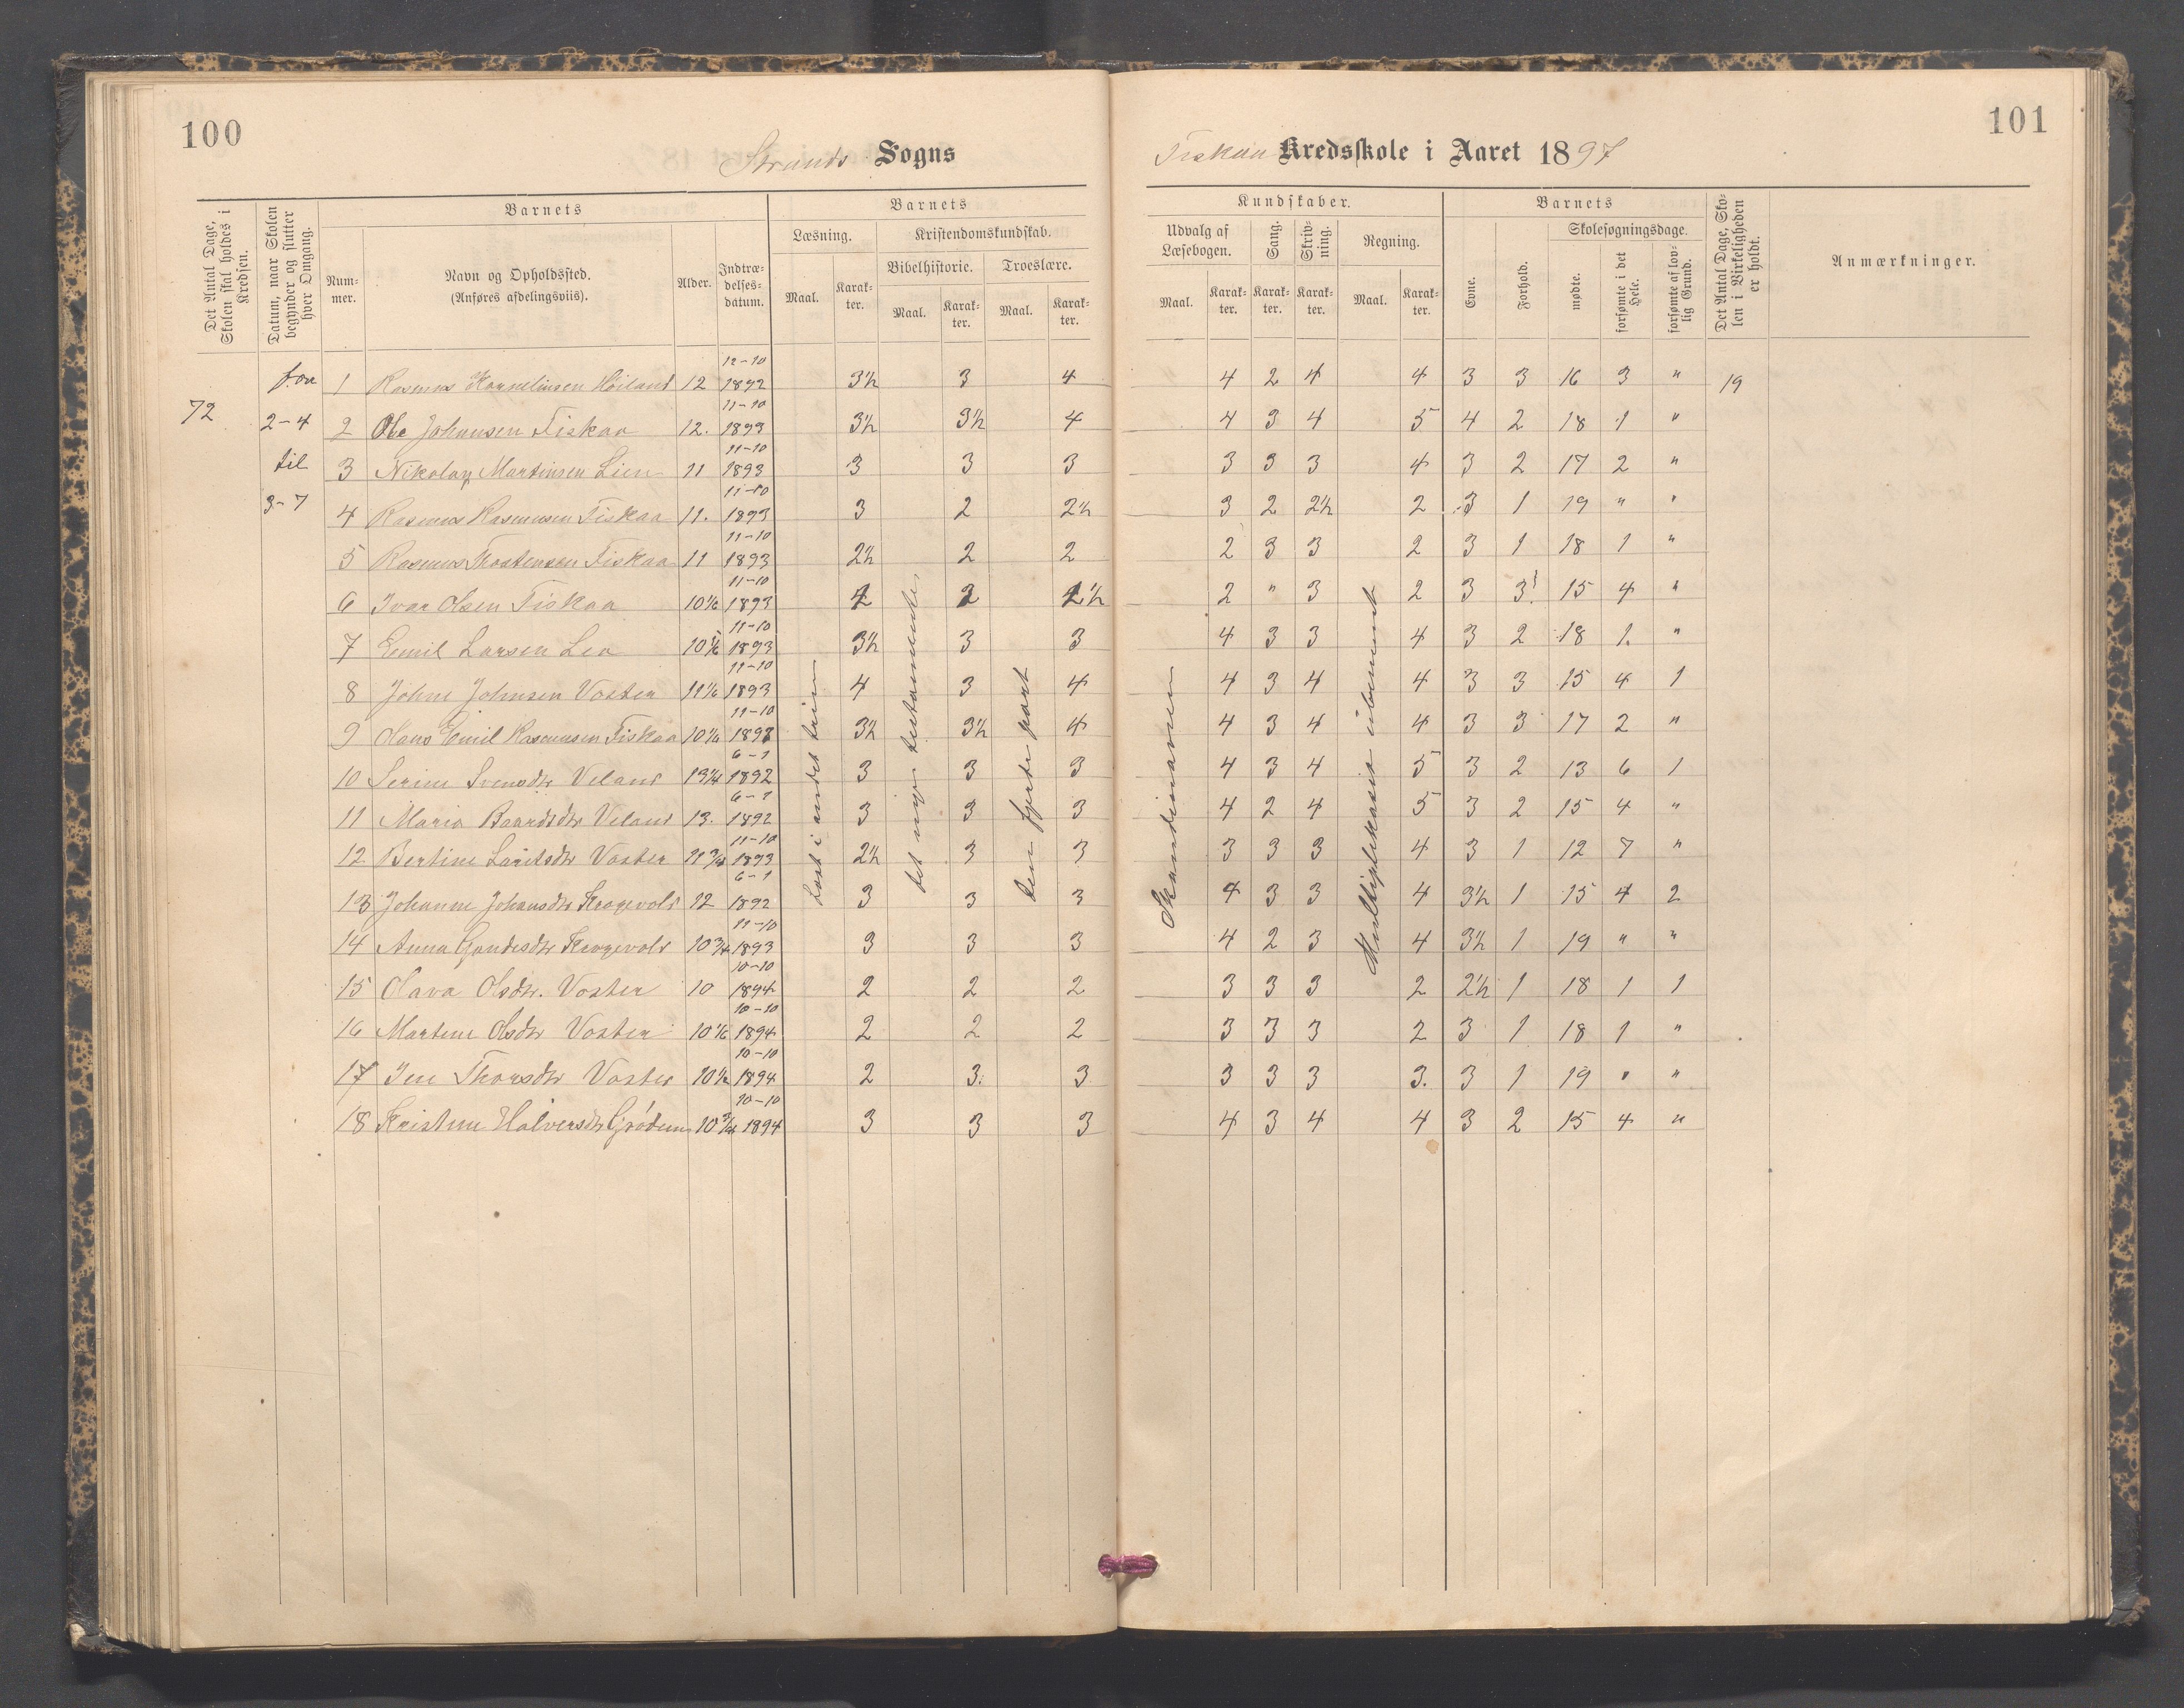 100
Strands Sogns
Det Antal Dage, Skolen skal holdes i Kredsen.
Datum, naar Skolen begynder og slutter hver Omgang.
Barnets
Num-mer.
Navn og Opholdssted. (Anføres afdelingsviis).
Alder.
Indtræ-delses-datum.
Barnets
Læsning.
Maal.
Karak-ter.
Kristendomskundskab.
Bibelhistorie.
Maal.
Karak-ter.
Troeslære.
Maal.
Karak-ter.
72
fra
2-4
til
3-7
1 Rasmus Kornelinsen Höiland 12 12-10 1892 3½ 3 4
2 Ole Johansen Fiskaa 12. 11-10 1893 3½ 3½ 4
3 Nikolay Martinsen Lien 11 11-10 1893 3 3 3
4 Rasmus Rasmussen Fiskaa 11. 11-10 1893 3 2 2½
5 Rasmus Thostensen Fiskaa 11 11-10 1893 2½ 2 2
6 Ivar Olsen Fiskaa 10 1/6 11-10 1893 2
7 Emil Larsen Lea 11-10 1893 3½ 3 3
8 Johne Johnsen Voster 11 1/6 11-10 1893 4 3 4
9 Hans Emil Rasmussen Fiskaa 11-10 3½ 3½ 4
10 Serine Svensdtr Veland 13¼ 6-1 1892 3 3 3
11 Maria Baardsdtr Veland 13. 6-1 1892 3 3 3
12 Bertine Lauritsdtr Voster 11¾ 11-10 1893 2½ 3 3
13 Johanne Johansdtr Krogevold 12 6-1 1892 3 3 3
14 Anna Krogevold 10¾ 11-10 1893 3 3 3
15 Olava Olsdtr. Voster 10 10-10 1894 2 2 2
16 Martine Olsdtr Voster 10 1/6 10-10 1894 2 2 2
17 Ine Thorsdtr Voster 10½ 10-10 1894 2 3. 3
18 Kristine Halversdtr Grödem 10-10 1894 3 3 3
Læst i andet trin
det nye testamente
den fjerde part
101
Fiskaa Kredsskole i Aaret 1897
Kundskaber.
Udvalg af Læsebogen.
Maal.
Karak-ter.
Sang.
Karak-ter.
Skriv-ning.
Karak-ter.
Regning.
Maal.
Karak-ter.
Barnets
Evne.
Forhold.
Skolesøgningsdage.
mødte.
forsømte i det Hele.
forsømte af lov-lig Grund.
Det Antal Dage, Sko-len i Virkeligheden er holdt.
Anmærkninger.
4 2 4 4 3 3 16 3 " 19
4 3 4 5 4 2 18 1 "
3 3 3 4 3 2 17 2 "
3 2 2½ 2 3 1 19 " "
2 3 3 2 3 1 18 1 "
2 " 3 2 3 3! 15 4 "
4 3 3 4 3 2 18 1. "
4 3 4 4 3 3 15 4 1
4 3 4 4 3 3 17 2 "
4 3 4 5 3 2 13 6 1
4 2 4 5 3 2 15 4 "
3 3 3 4 3 1 12 7 "
4 3 3 4 3½ 1 15 4 2
4 2 3 4 3½ 1 19 " "
3 3 3 2 2½ 1 18 1 1
3 3 3 2 3 1 18 1 "
3 3 3 3. 3 1 19 " "
4 3 4 4 3 2 15 4 "
Skandinavien